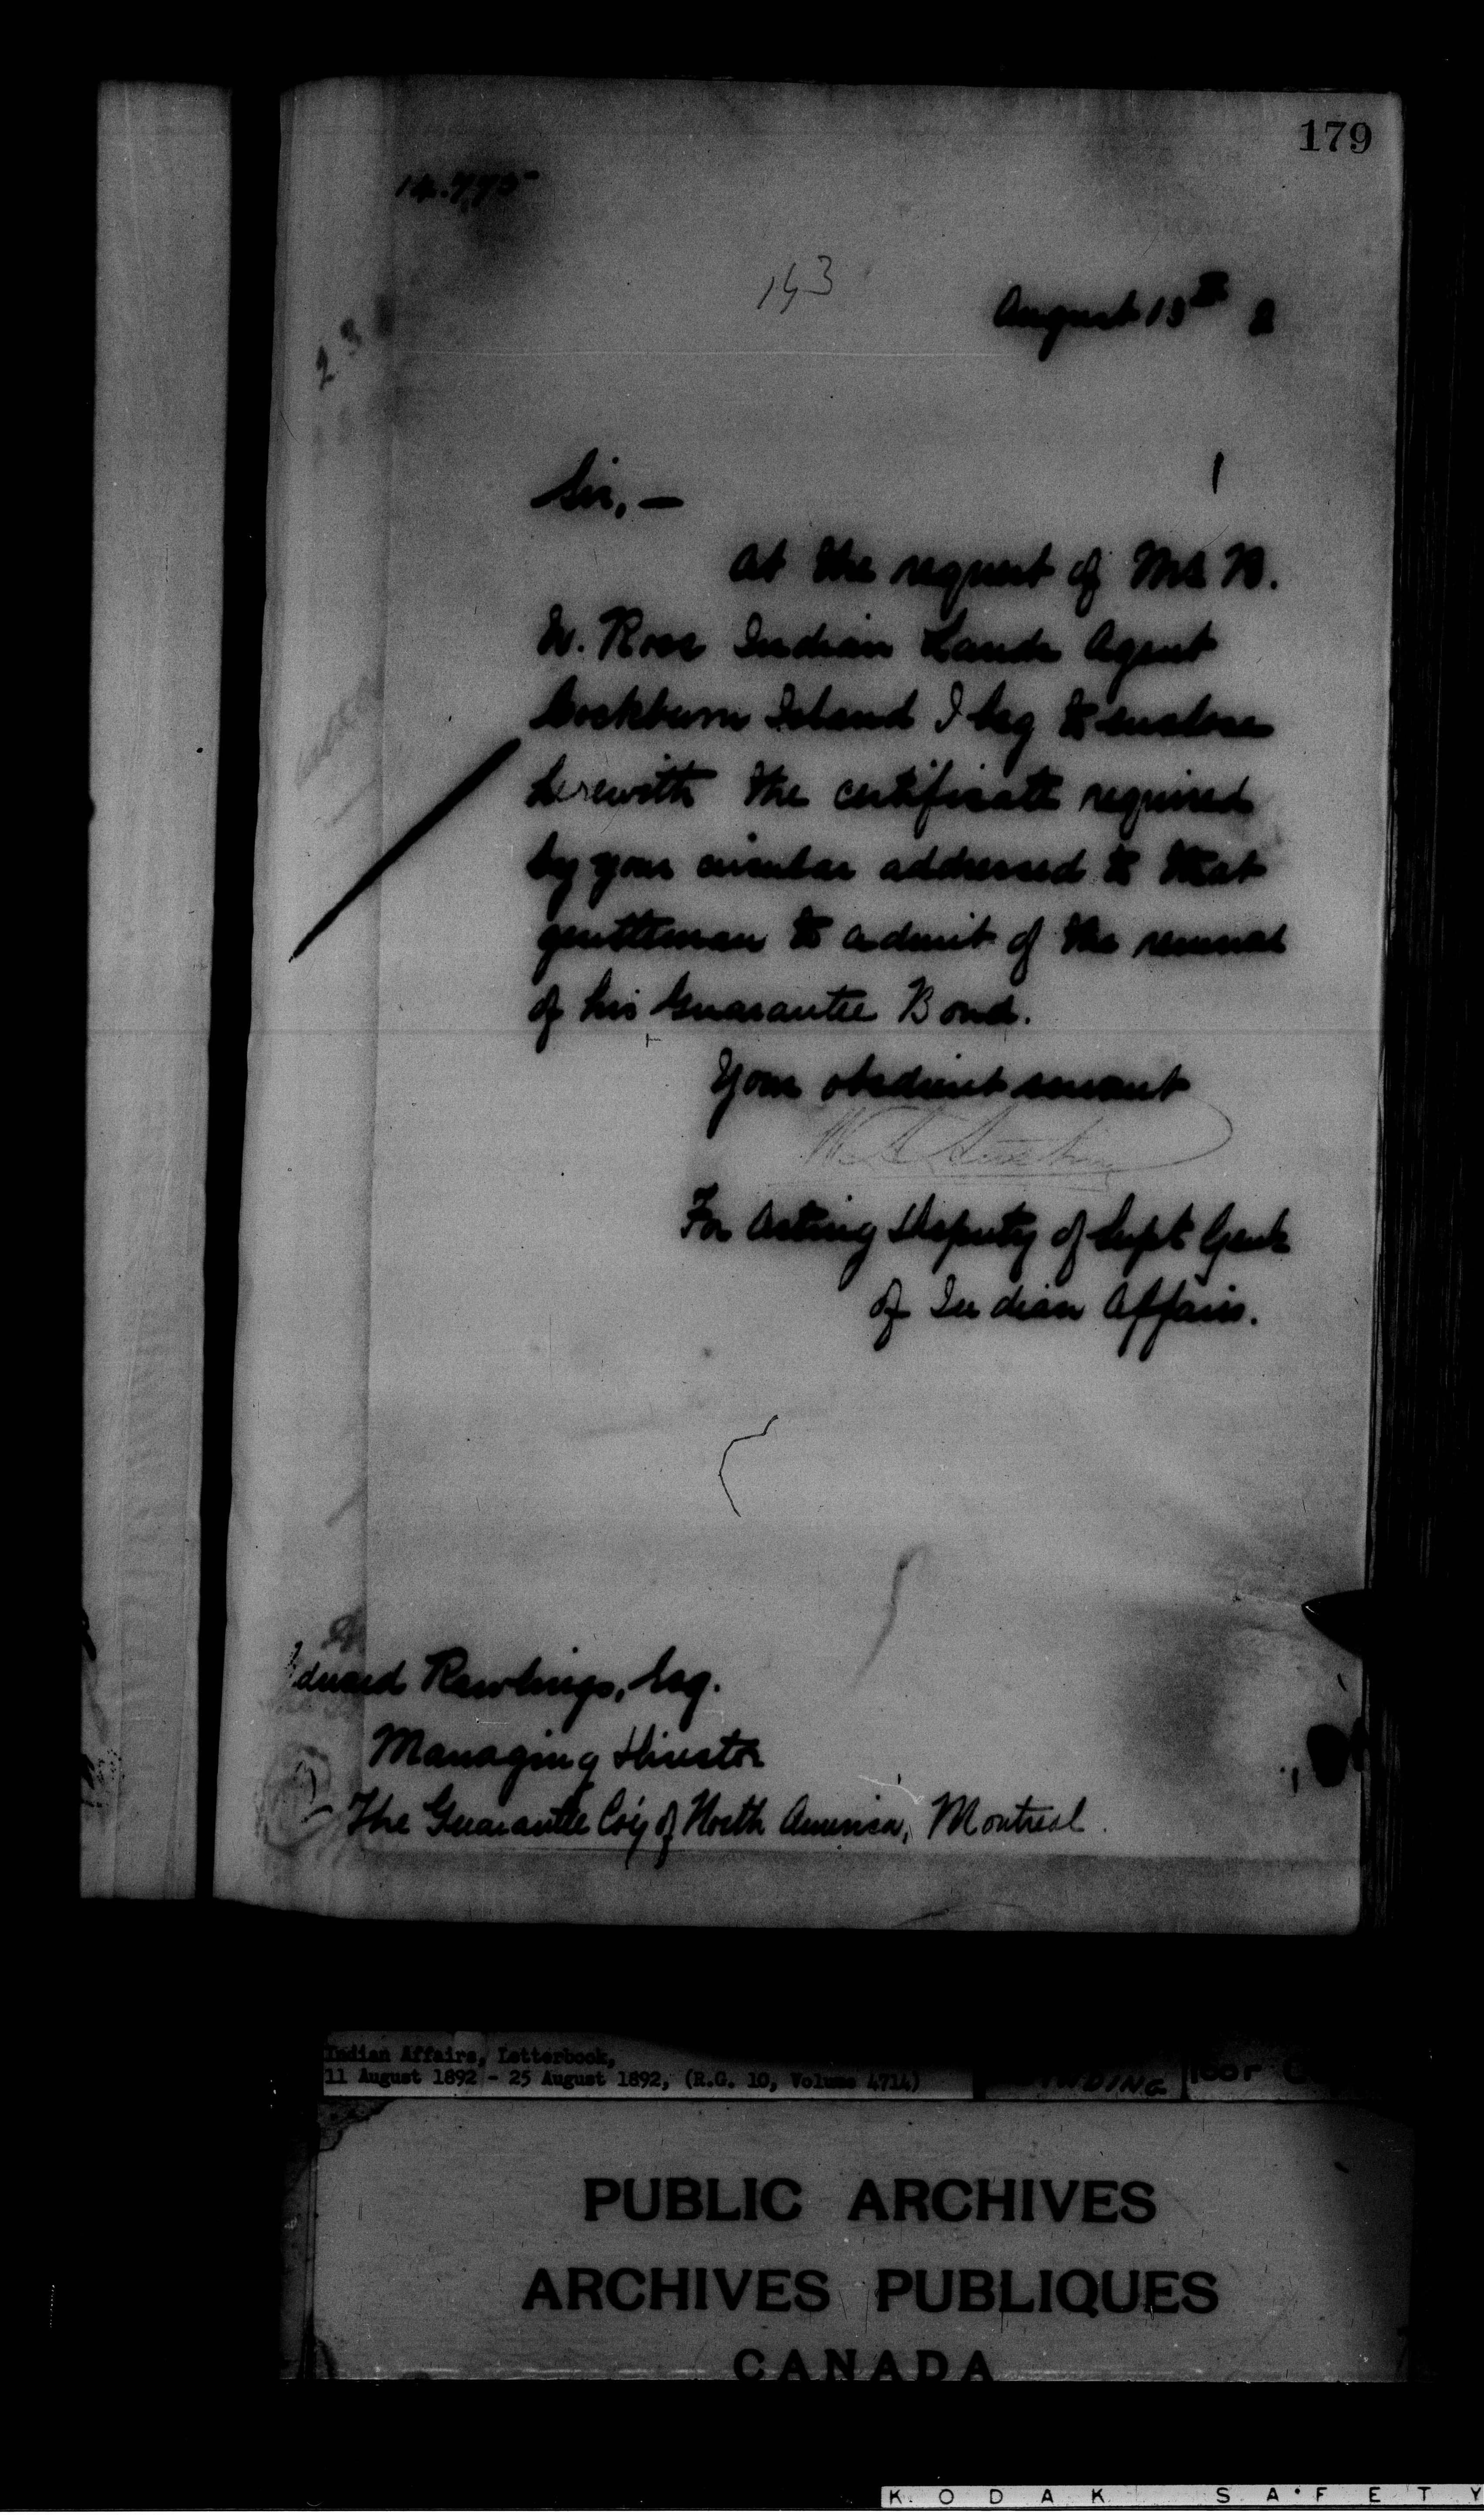 179
143
August 13th 2
Sir, —
At the request of Mr B.
W. Ross Indian Lands Agent
Cockburn Island I beg to enclose
herewith the certificate required
by your circular addressed to that
gentleman to admit of the renewal
of his Guarantee Bond.
Your obedient servant
For Acting Deputy of Supt Genl
of Indian Affairs.
Edward Rawlings, Esq.
Managing Director
The Guarantee Co'y of North America, Montreal.
Indian Affairs, Letterbook,
11 August 1892 - 25 August 1892, (R.G. 10, Volume 4714)
PUBLIC ARCHIVES
ARCHIVES PUBLIQUES
CANADA
KODAK SAFETY